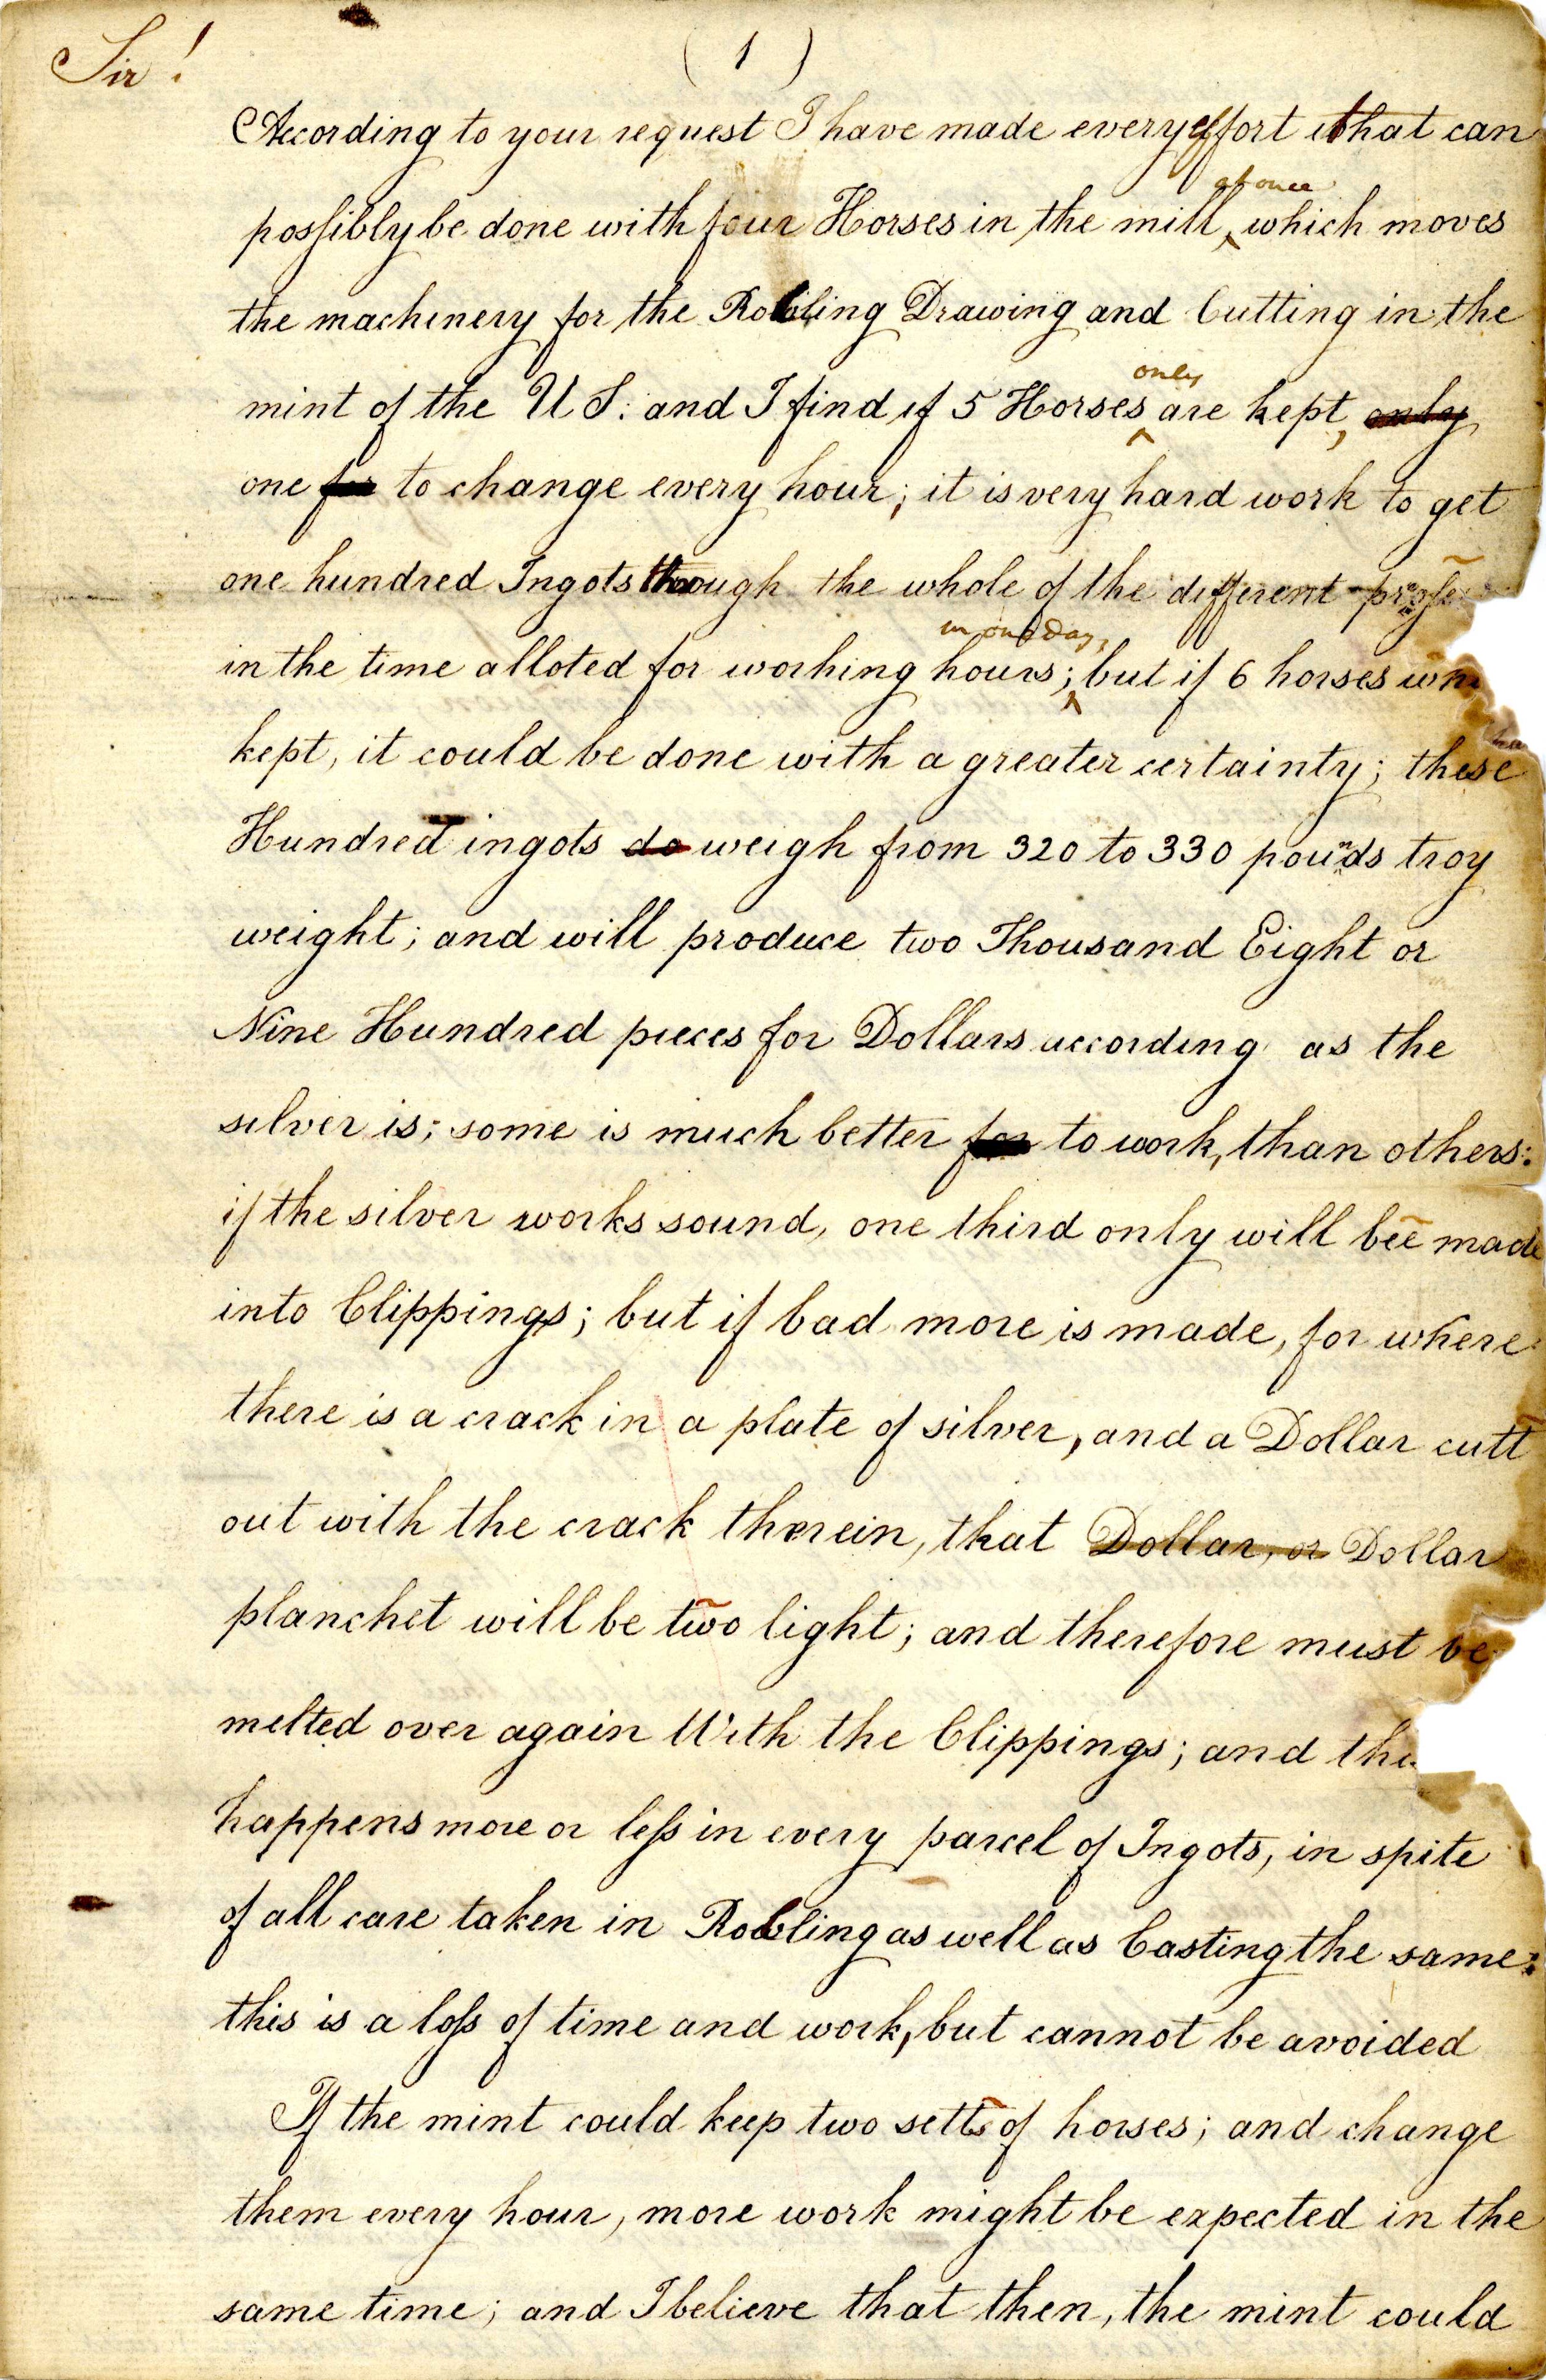 Sir!
( 1 )
According to your request I have made every effort that can
at once
possibly be done with four Horses in the mill, which moves
the machinery for the Rolling Drawing and Cutting in the
only
mint of the U S: and I find if 5 Horses are kept, only
one for to change every hour; it is very hard work to get
one hundred Ingots through the whole of the different
in one day,
in the time alloted for working hours; but if 6 horses
kept, it could be done with a greater certainty; these
Hundred ingots do weigh from 320 to 330 pounds troy
weight; and will produce two Thousand Eight or
Nine Hundred pieces for Dollars according as the
silver is; some is much better for to work, than others:
if the silver works sound, one third only will bee made
into Clippings; but if bad more is made, for where
there is a crack in a plate of silver, and a Dollar cutt
out with the crack therein, that Dollar, or Dollar
planchet will be two light; and therefore must be
melted over again With the Clippings; and
happens more or less in every parcel of Ingots, in spite
of all care taken in Rolling as well as Casting the same:
this is a loss of time and work, but cannot be avoided
If the mint could keep two setts of horses; and change
them every hour, more work might be expected in the
same time; and I believe that then, the mint could